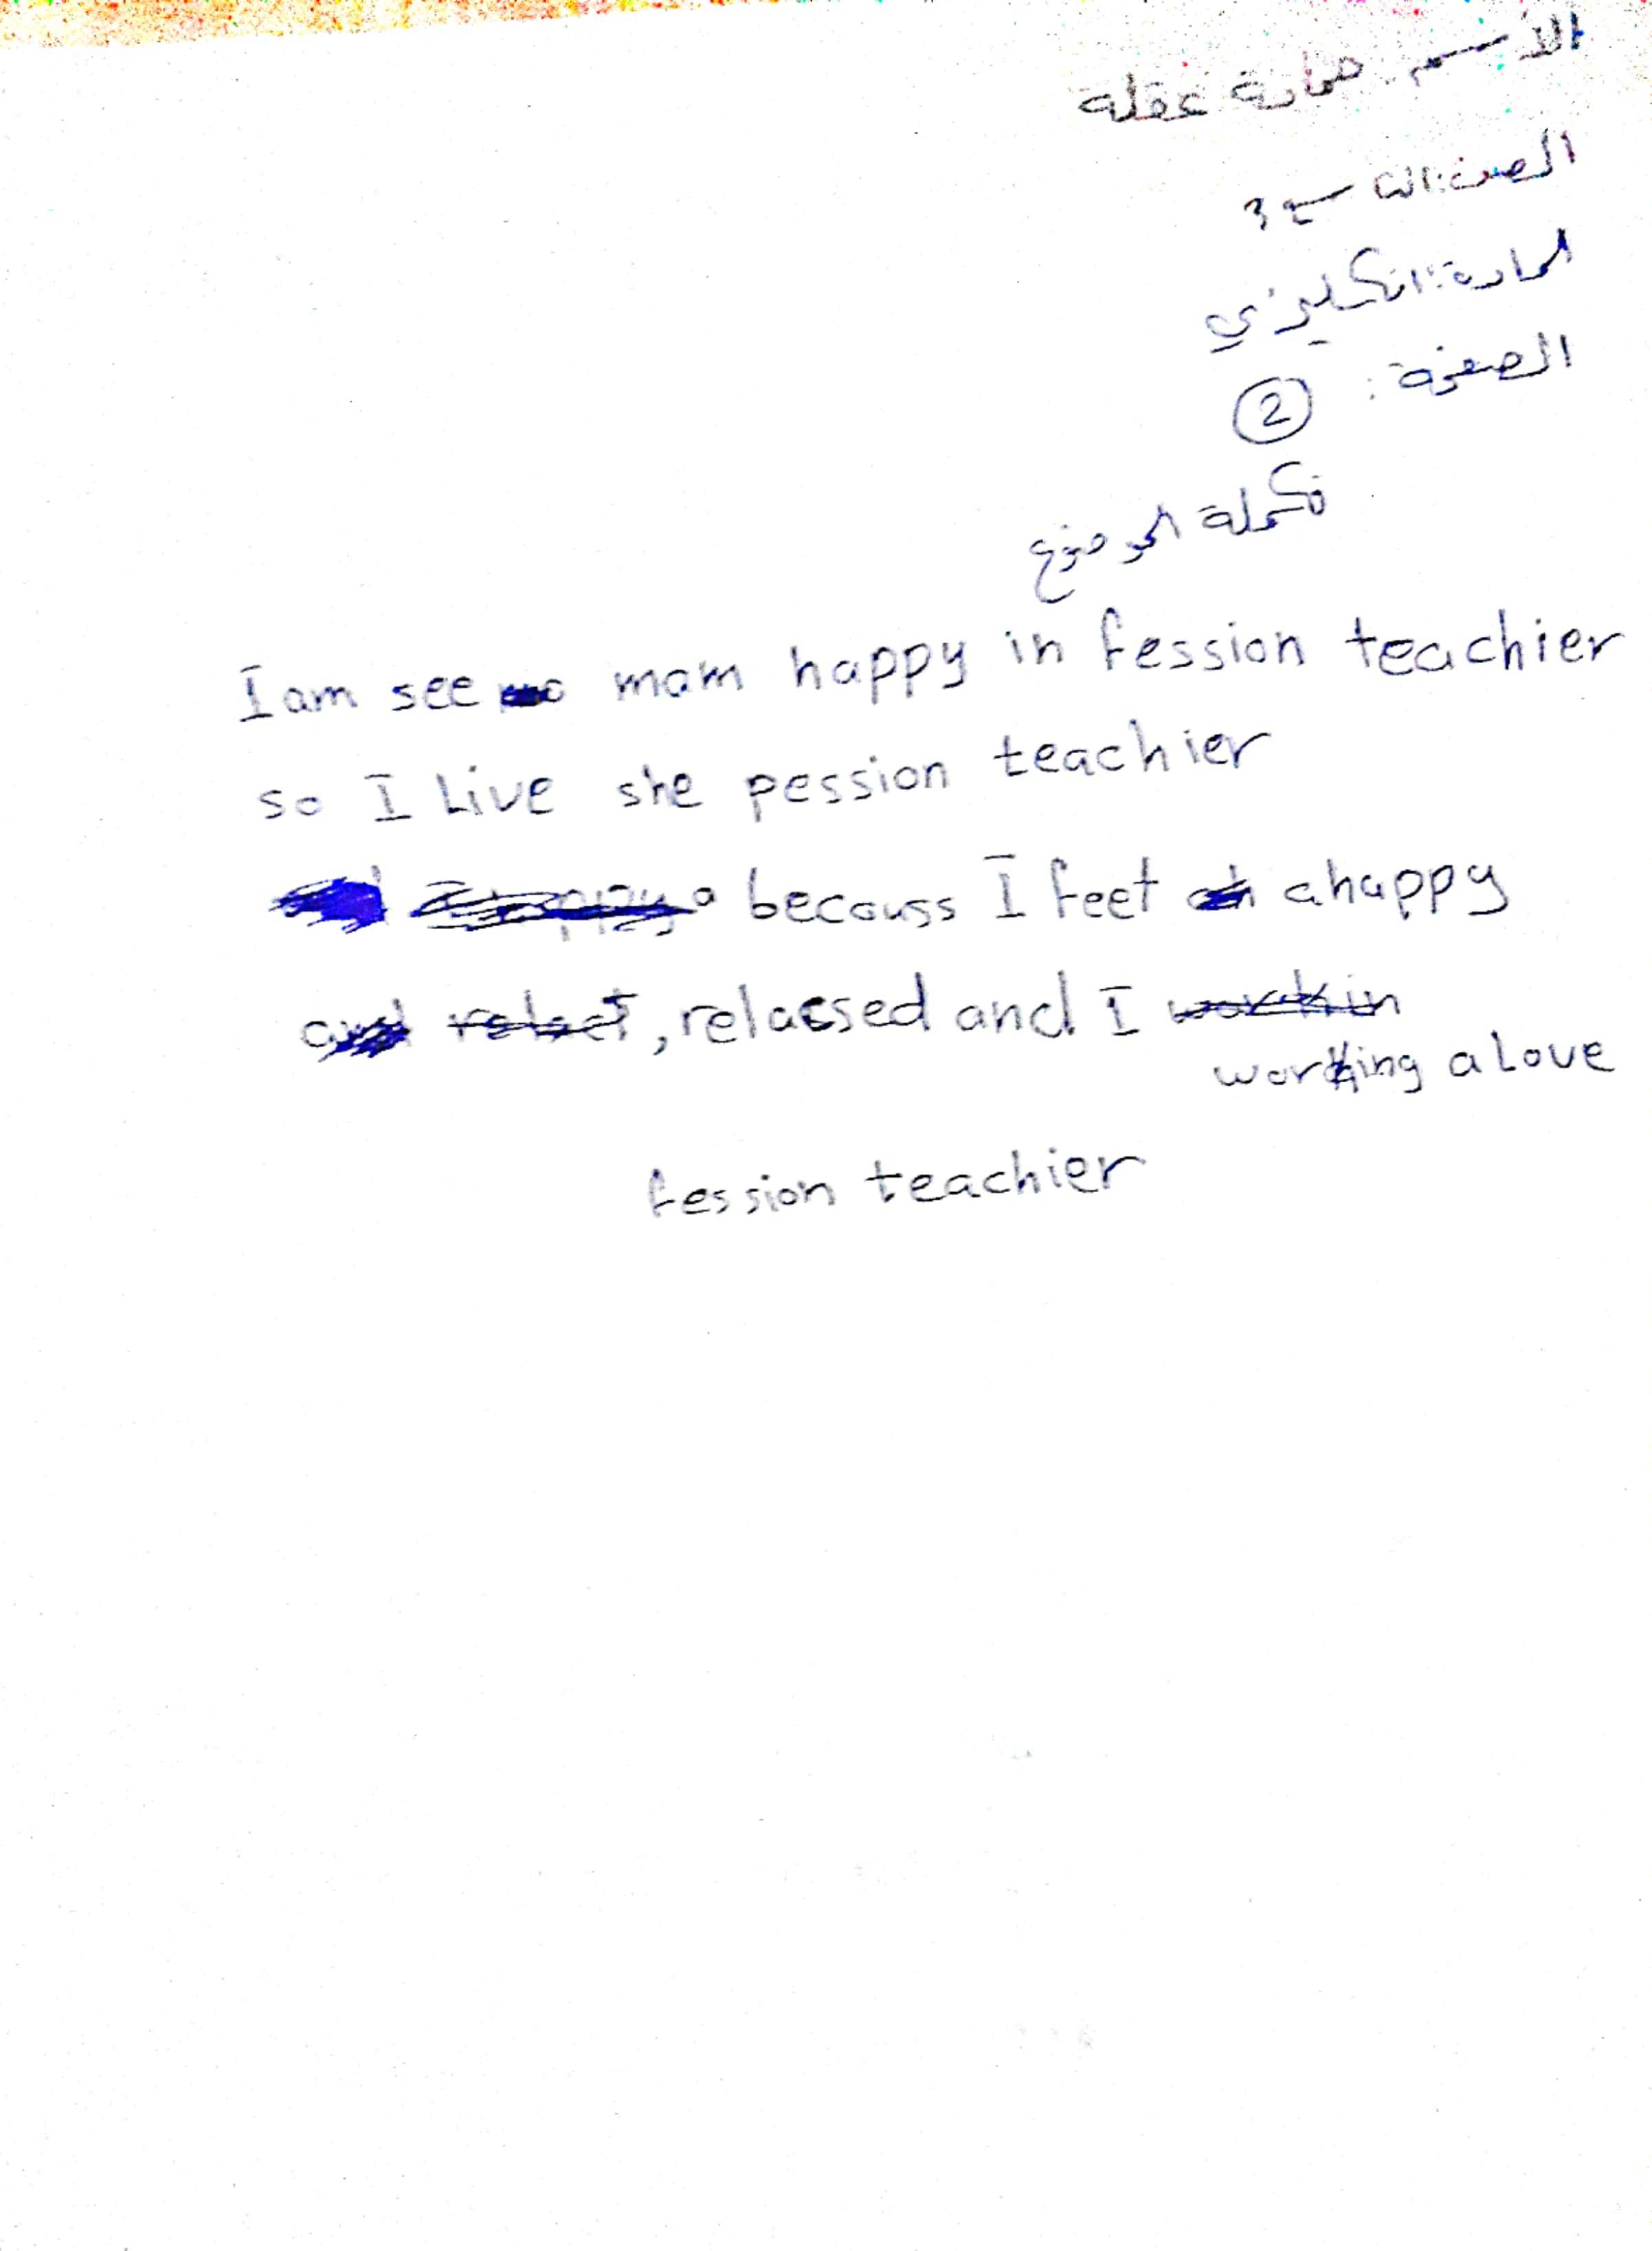 الأسم: حمادة عقلة
الصف: التاسع 3
المادة: انكليزي
الصفحة: 2
تكملة الموضوع
I am see mom happy in fession teachier
so I Live she pession teachier
becouss I feet a happy
, relacsed and I
working a Love
fession teachier